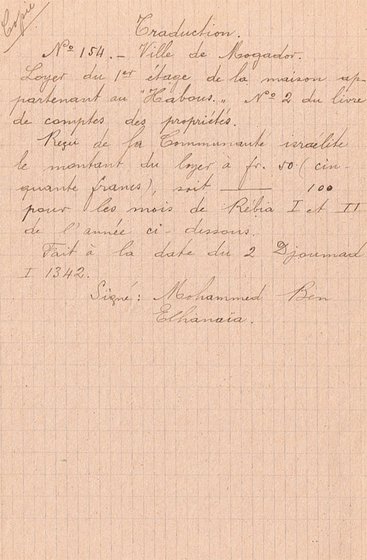 Copie
Traduction.
Nº 154. - Ville de Mogador.
Loyer du 1er étage de la maison ap-
partenant au "Habous" Nº 2 du livre
de comptes des propriétés.
Reçu de la Communauté israélite
le montant du loyer à fr. 50 (cin-
quante francs), soit ——— 100
pour les mois de Rébia I et II
de l'année ci-dessous.
Fait à la date du 2 Djoumad
I 1342.
Signé: Mohammed Ben
Elhanaia.